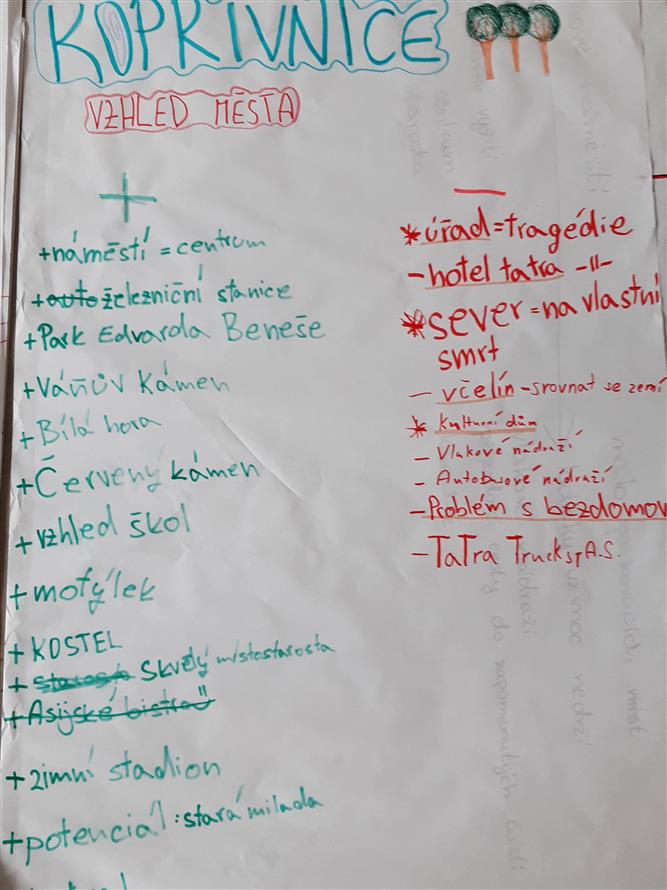 KOPŘIVNICE
VZHLED MĚSTA
+
+náměstí = centrum
+auto železniční stanice
+Park Edvarda Beneše
+Váňův kámen
+Bílá hora
+Červený kámen
+vzhled škol
+motýlek
+KOSTEL
+ Skvělý místostarosta
+Asijské bistro
+zimní stadion
+potenciál: stará milada
—
*úřad=tragédie
-hotel tatra -||-
*sever=na vlastní
smrt
- včelín - srovnat se zemí
* Kulturní dům
- Vlakové nádraží
- Autobusové nádraží
-Problém s bezdomov
-TaTra Trucks A.S.